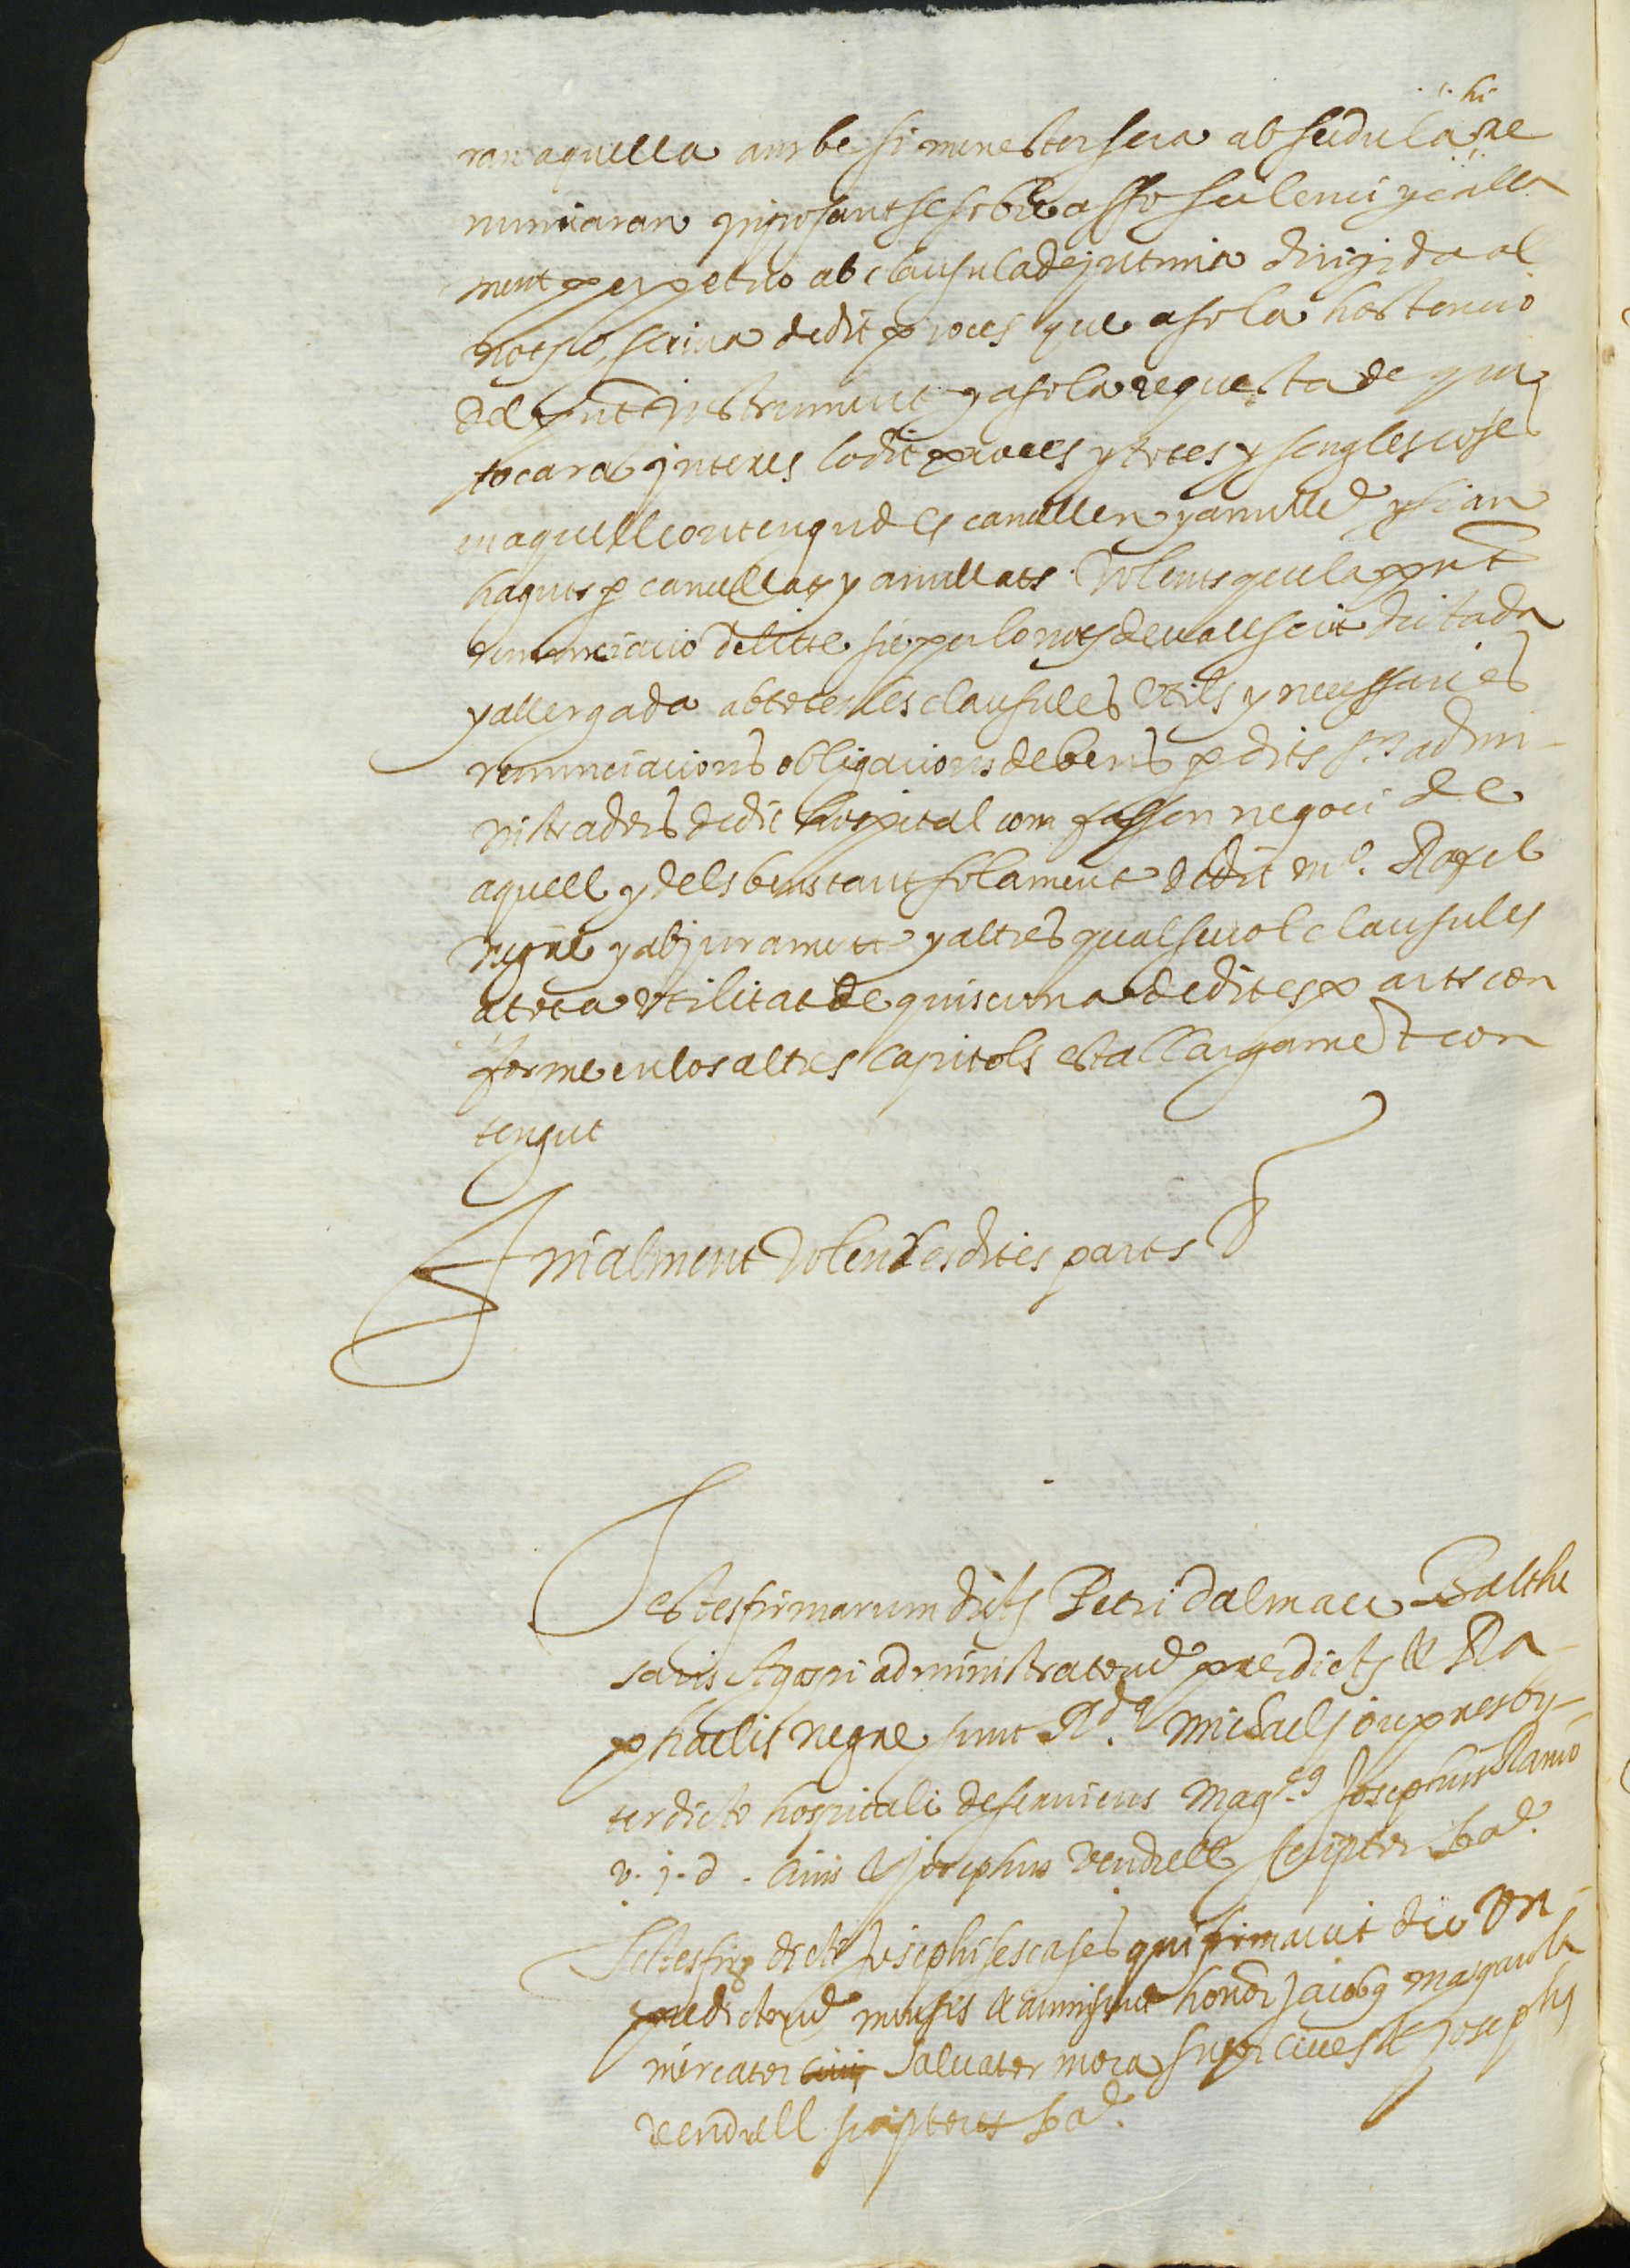 hi
ran aquella ambe si menester sera ab sedula re
nunciaran imposantse sobre asso silenci y calla
ment perpetuo ab clausula de intima dirigida al
not.º scriva de dit proces que a sola hostencio
del pnt instrument y a sola requesta de qui
tocara interes lo dit proces y totes y sengles coses
en aquell contengudes cancellen y anullen y sian
haguts p cancellats y anullats. Volents que la pnt
renunciacio de lite sie per lo not.º devall scrit dictada
y allergada ab totes les clausules utils y necessaries
renunciacions obligacions de bens p dits s.rs admi-
nistradors de dit hospital com fassen negoci de
aquell y dels bens tant solament de dit m.º Rafel
negre y ab jurament y altres qualsevol clausules
a tota utilitat de quiscuna de dites parts con
forme en los altres capitols esta llargament con
tengut
Finalment Volen les dites parts
Testes firmarum dictorum Petri dalmau Balthe
saris administratorum predictorum et Ra-
phaelis negre sunt R.dus michael jou presby-
ter dicto hospitali deserviens mag.cus Josephus Ramo
v. j. d. civis et josephus vendrell scriptor ba.e
Testes fir.e dicti Josephi sescases qui firmavit die Un
predictorum mensis et anni sunt honor. jacobus margarola
mercator civis Salvator mora super cives et josephus
vendrell scriptores ba.e